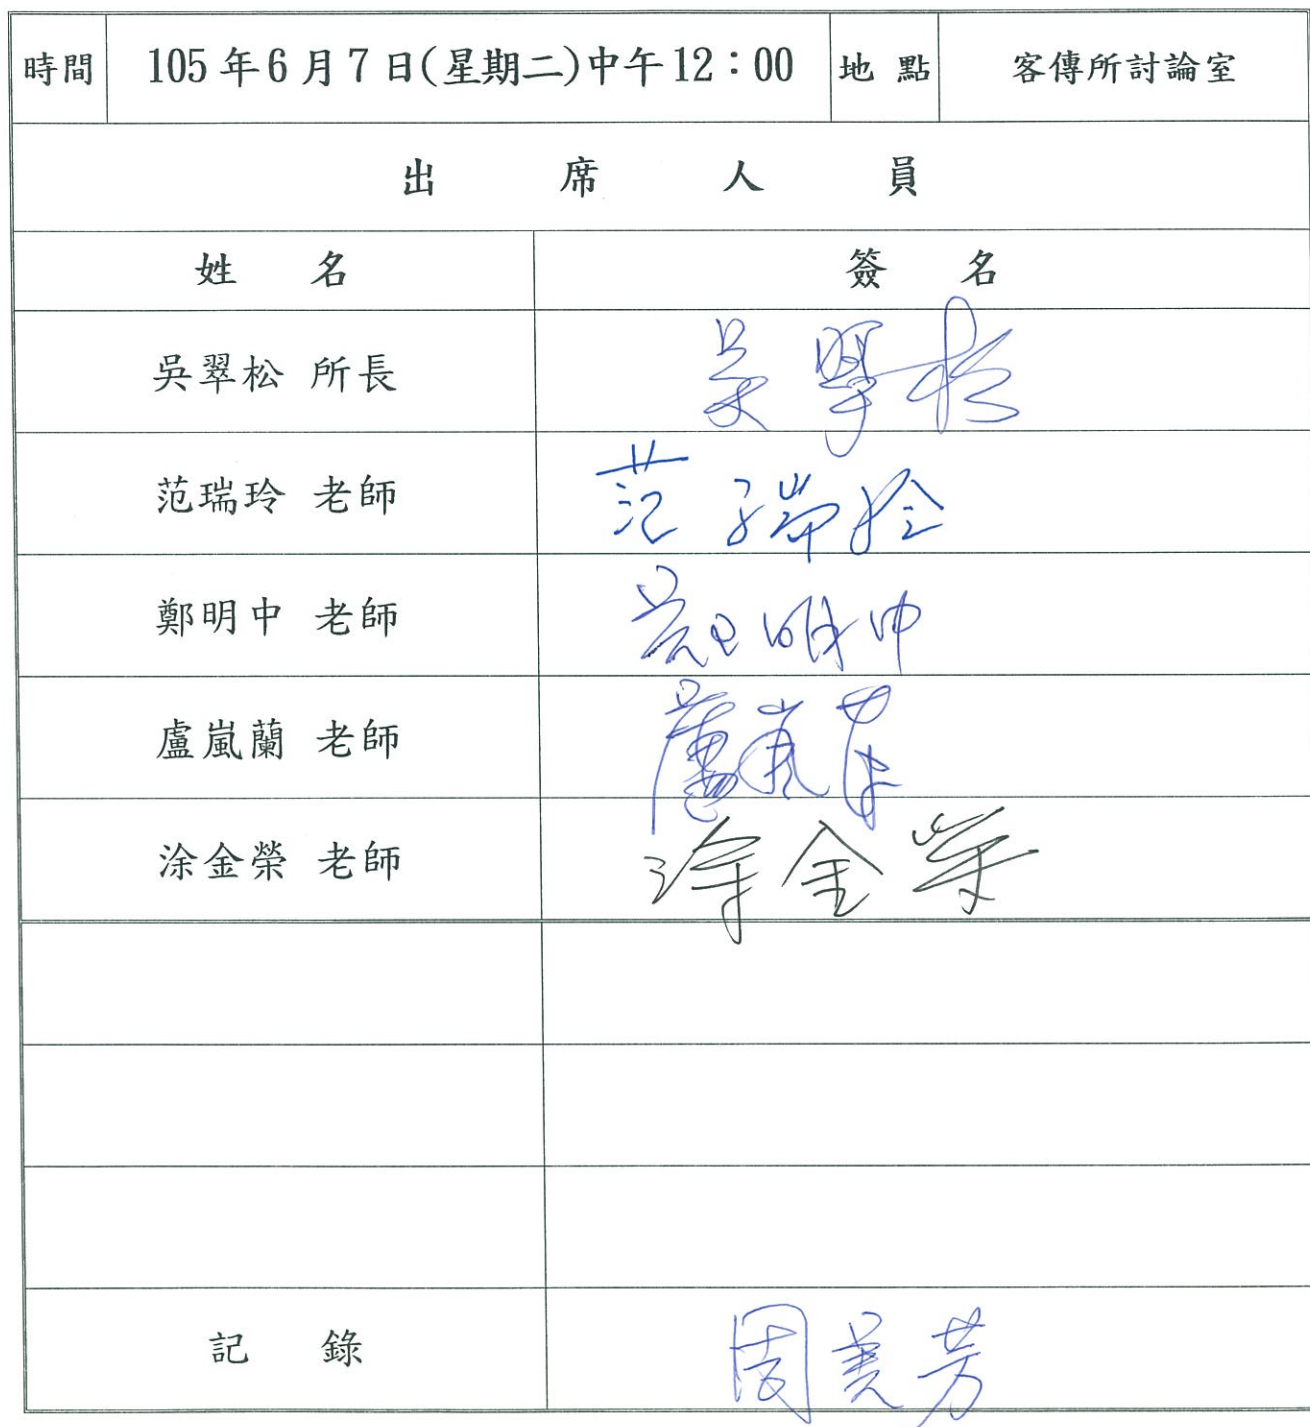 時間 105年6月7日(星期二)中午12：00 地點 客傳所討論室
出席人員
姓名 簽名
吳翠松 所長 吳翠松
范瑞玲 老師 范瑞玲
鄭明中 老師 鄭明中
盧嵐蘭 老師 盧嵐蘭
涂金榮 老師 涂金榮
記錄 周美芳